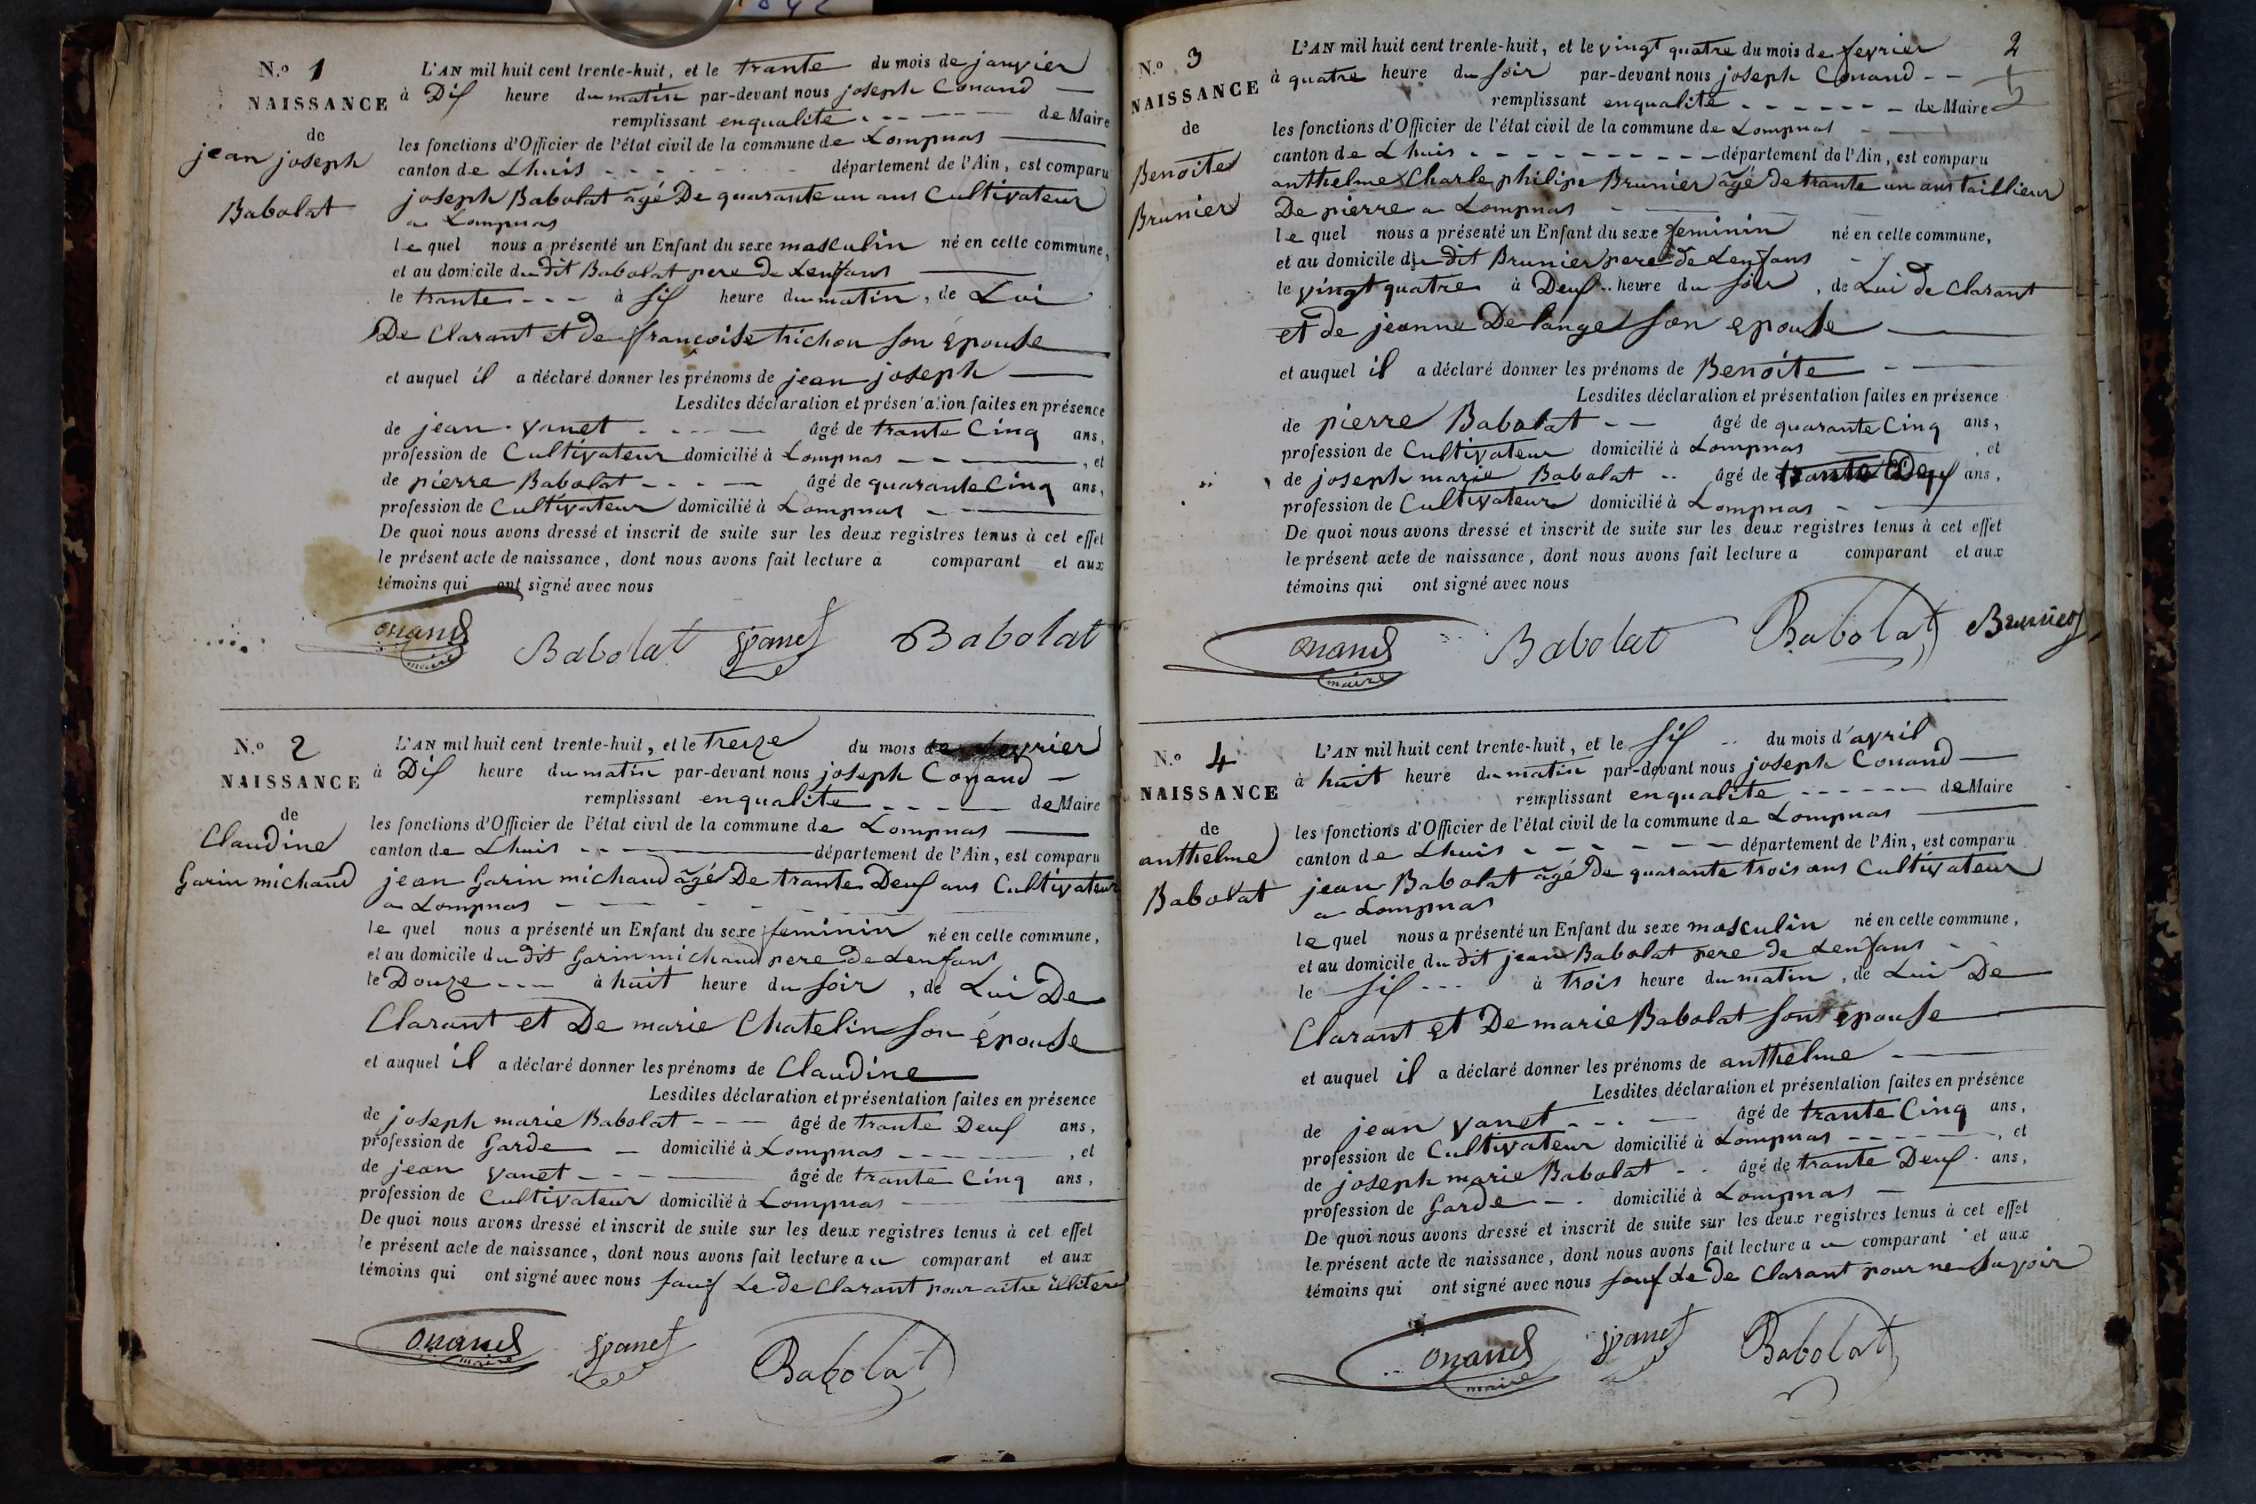 N.o 1
NAISSANCE
de
jean joseph
Babolat
L'AN mil huit cent trente-huit, et le trante du mois de janvier
à Dis heure du matin par-devant nous joseph Conand
remplissant enqualité de Maire
les fonctions d'Officier de l'état civil de la commune de Lompnas
canton de Lhuis département de l'Ain, est comparu
joseph Babolat âgé De quarante un ans Cultivateur
a Lompnas
le quel nous a présenté un Enfant du sexe masculin né en cette commune,
et au domicile du dit Babolat pere de Lenfans
le trante à sis heure du matin, de Lui
De Clarant et de francoise trichon son épouse
et auquel il a déclaré donner les prénoms de jean joseph
Lesdites déclaration et présentation faites en présence
de jean vanet âgé de trante Cinq ans,
profession de Cultivateur domicilié à Lompnas, et
de pierre Babolat âgé de quarante Cinq ans,
profession de Cultivateur domicilié à Lompnas
De quoi nous avons dressé et inscrit de suite sur les deux registres tenus à cet effet
le présent acte de naissance, dont nous avons fait lecture a comparant et aux
témoins qui ont signé avec nous
Conand Babolat Vanet Babolat
maire
N.o 2
NAISSANCE
de
Claudine
Garin michaud
L'AN mil huit cent trente-huit, et le treize du mois de fevrier
à Dis heure du matin par-devant nous joseph Conand
remplissant enqualité de Maire
les fonctions d'Officier de l'état civil de la commune de Lompnas
canton de Lhuis département de l'Ain, est comparu
jean Garin michaud âgé De trante Deus ans Cultivateur
a Lompnas
le quel nous a présenté un Enfant du sexe feminin né en cette commune,
et au domicile du dit Garin michaud pere De Lenfant
le Douze à huit heure du soir, de Lui De
Clarant et De marie Chatelin son épouse
et auquel il a déclaré donner les prénoms de Claudine
Lesdites déclaration et présentation faites en présence
de joseph marie Babolat âgé de trante Deus ans,
profession de Garde domicilié à Lompnas, et
de jean vanet âgé de trante Cinq ans,
profession de Cultivateur domicilié à Lompnas
De quoi nous avons dressé et inscrit de suite sur les deux registres tenus à cet effet
le présent acte de naissance, dont nous avons fait lecture au comparant et aux
témoins qui ont signé avec nous sauf Le de Clarant pour aitre
Conand Vanet Babolat
maire
2
N.o 3
NAISSANCE
de
Benoite
Brunier
L'AN mil huit cent trente-huit, et le vingt quatre du mois de fevrier
à quatre heure du soir par-devant nous joseph Conand
remplissant enqualité de Maire
les fonctions d'Officier de l'état civil de la commune de Lompnas
canton de Lhuis département de l'Ain, est comparu
anthelme Charle philipe Brunier âgé de trante un ans taillieur
De pierre a Lompnas
le quel nous a présenté un Enfant du sexe feminin né en cette commune,
et au domicile du dit Brunier pere de Lenfans
le vingt quatre à Deus heure du soir, de Lui de Clarant
et de jeanne Delange son epouse
et auquel il a déclaré donner les prénoms de Benoite
Lesdites déclaration et présentation faites en présence
de pierre Babolat âgé de quarante Cinq ans,
profession de Cultivateur domicilié à Lompnas, et
de joseph marie Babolat âgé de trante Deus ans,
profession de Cultivateur domicilié à Lompnas
De quoi nous avons dressé et inscrit de suite sur les deux registres tenus à cet effet
le présent acte de naissance, dont nous avons fait lecture a comparant et aux
témoins qui ont signé avec nous
Conand Babolat Babolat Brunier
maire
N.o 4
NAISSANCE
de
anthelme
Babolat
L'AN mil huit cent trente-huit, et le sis du mois d'avril
à huit heure du matin par-devant nous joseph Conand
remplissant enqualité de Maire
les fonctions d'Officier de l'état civil de la commune de Lompnas
canton de Lhuis département de l'Ain, est comparu
jean Babolat âgé de quarante trois ans Cultivateur
a Lompnas
le quel nous a présenté un Enfant du sexe masculin né en cette commune,
et au domicile du dit jean Babolat pere de Lenfans
le sis à trois heure du matin, de Lui De
Clarant et De marie Babolat son épouse
et auquel il a déclaré donner les prénoms de anthelme
Lesdites déclaration et présentation faites en présence
de jean vanet âgé de trante Cinq ans,
profession de Cultivateur domicilié à Lompnas, et
de joseph marie Babolat âgé de trante Deus ans,
profession de Garde domicilié à Lompnas
De quoi nous avons dressé et inscrit de suite sur les deux registres tenus à cet effet
le présent acte de naissance, dont nous avons fait lecture au comparant et aux
témoins qui ont signé avec nous sauf Le de Clarant pour ne savoir
Conand Vanet Babolat
maire